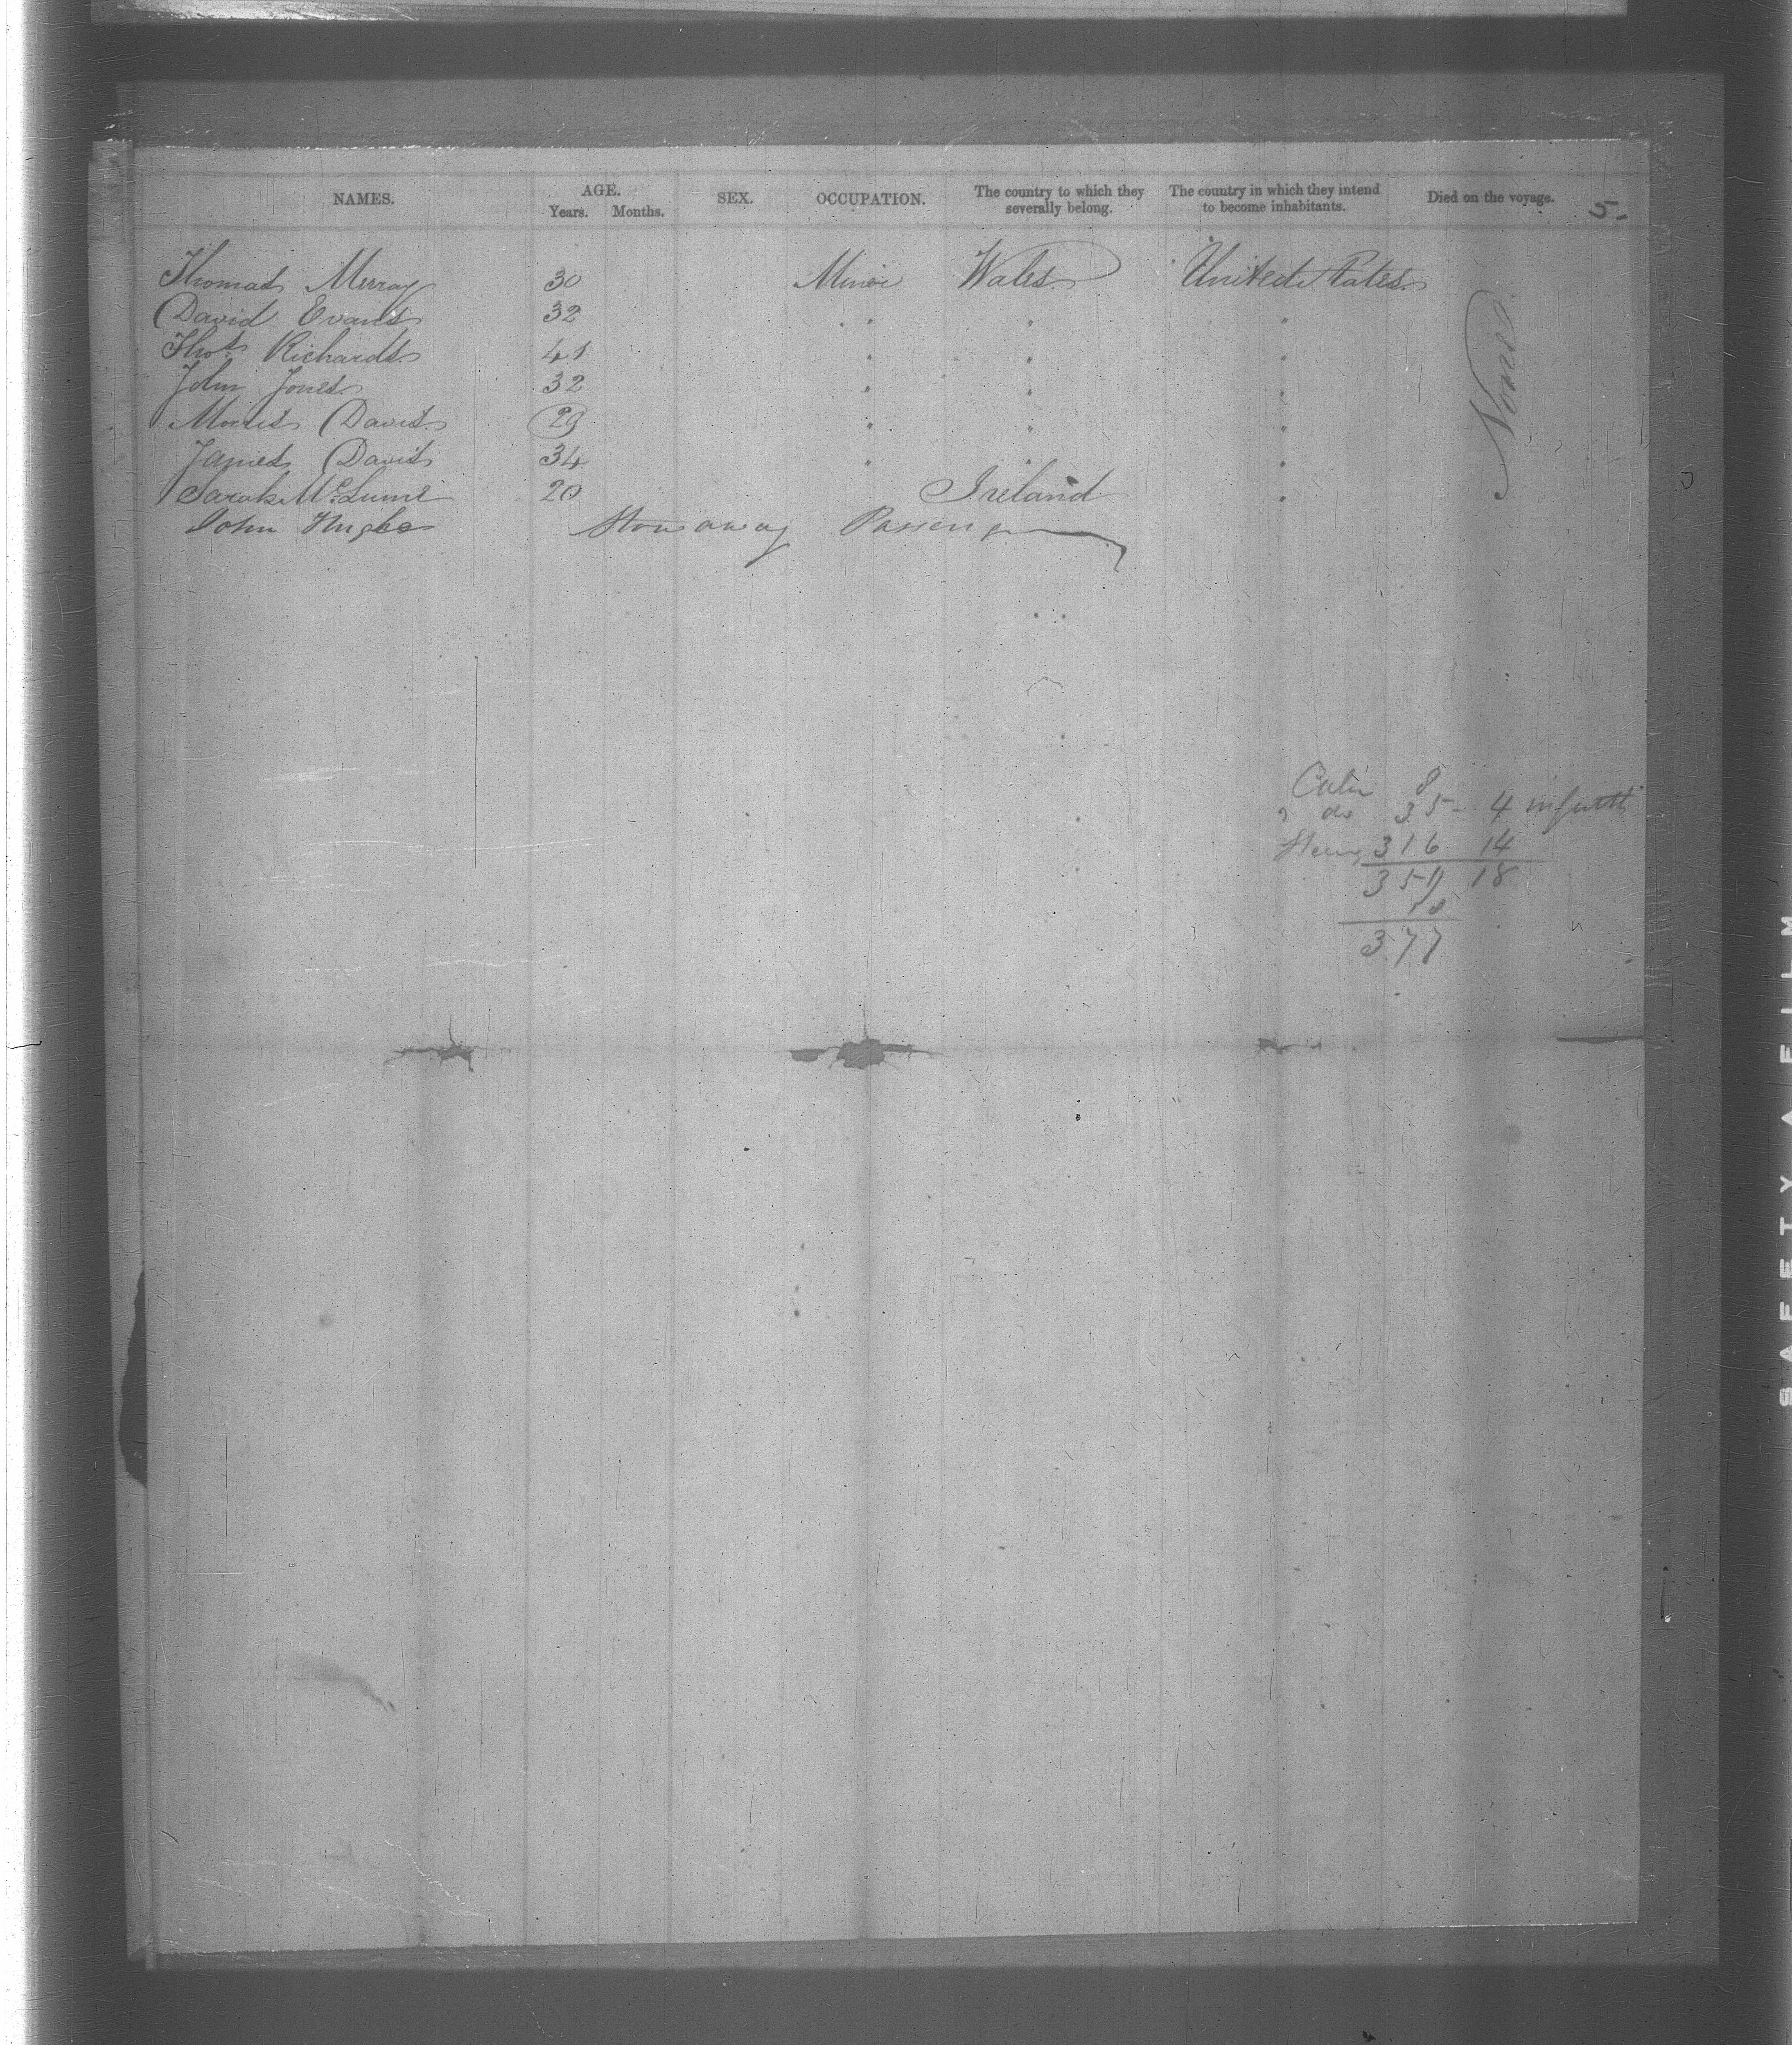 NAMES. AGE. SEX. OCCUPATION. The country to which they severally belong. The country in which they intend to become inhabitants. Died on the voyage. 5-
Years. Months.
Thomas Murray 30 Miner Wales United States
David Evans 32 " " "
Thos Richards 41 " " "
John Jones 32 " " "
Morris Davis 29 " " "
James Davis 34 " " "
Sarah 20 Ireland "
John Hughes Stowaway Passenger
None
Cabin 8
2 do 35 - 4 infants
Steerg 316 14
359 18
18
377
SAFETY A FILM